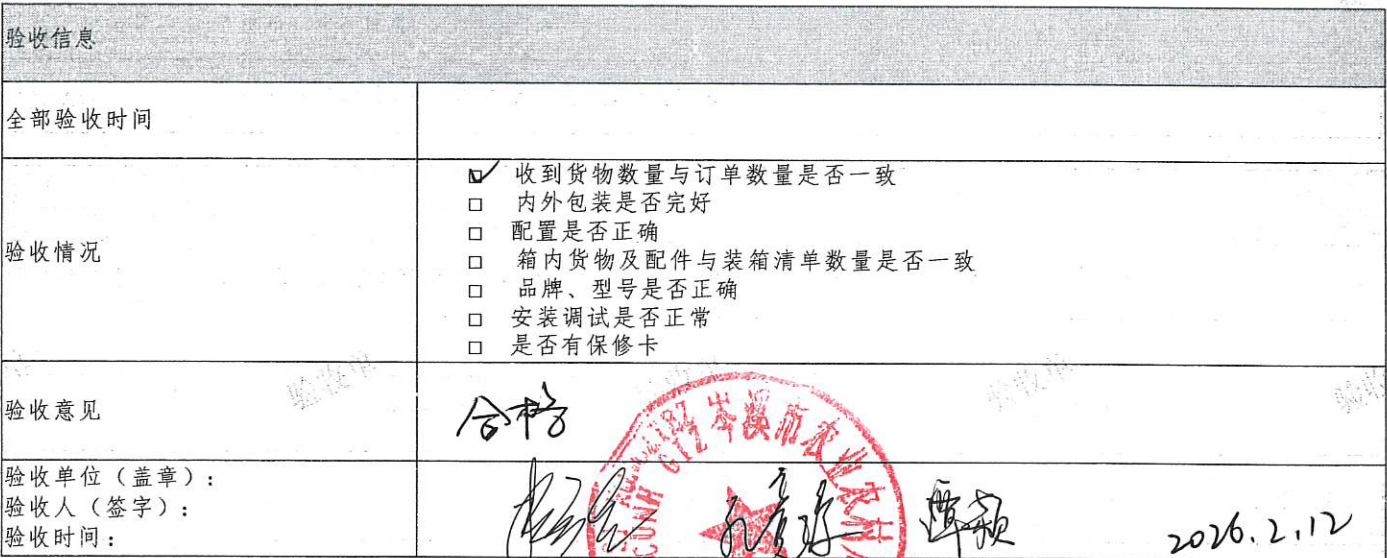 验收信息
全部验收时间
验收情况
☑ 收到货物数量与订单数量是否一致
□ 内外包装是否完好
□ 配置是否正确
□ 箱内货物及配件与装箱清单数量是否一致
□ 品牌、型号是否正确
□ 安装调试是否正常
□ 是否有保修卡
验收单
验收单
验收意见
合格
岑溪市农业农村
验收单位（盖章）：
验收人（签字）：
谭颖
验收时间：
2026.2.12